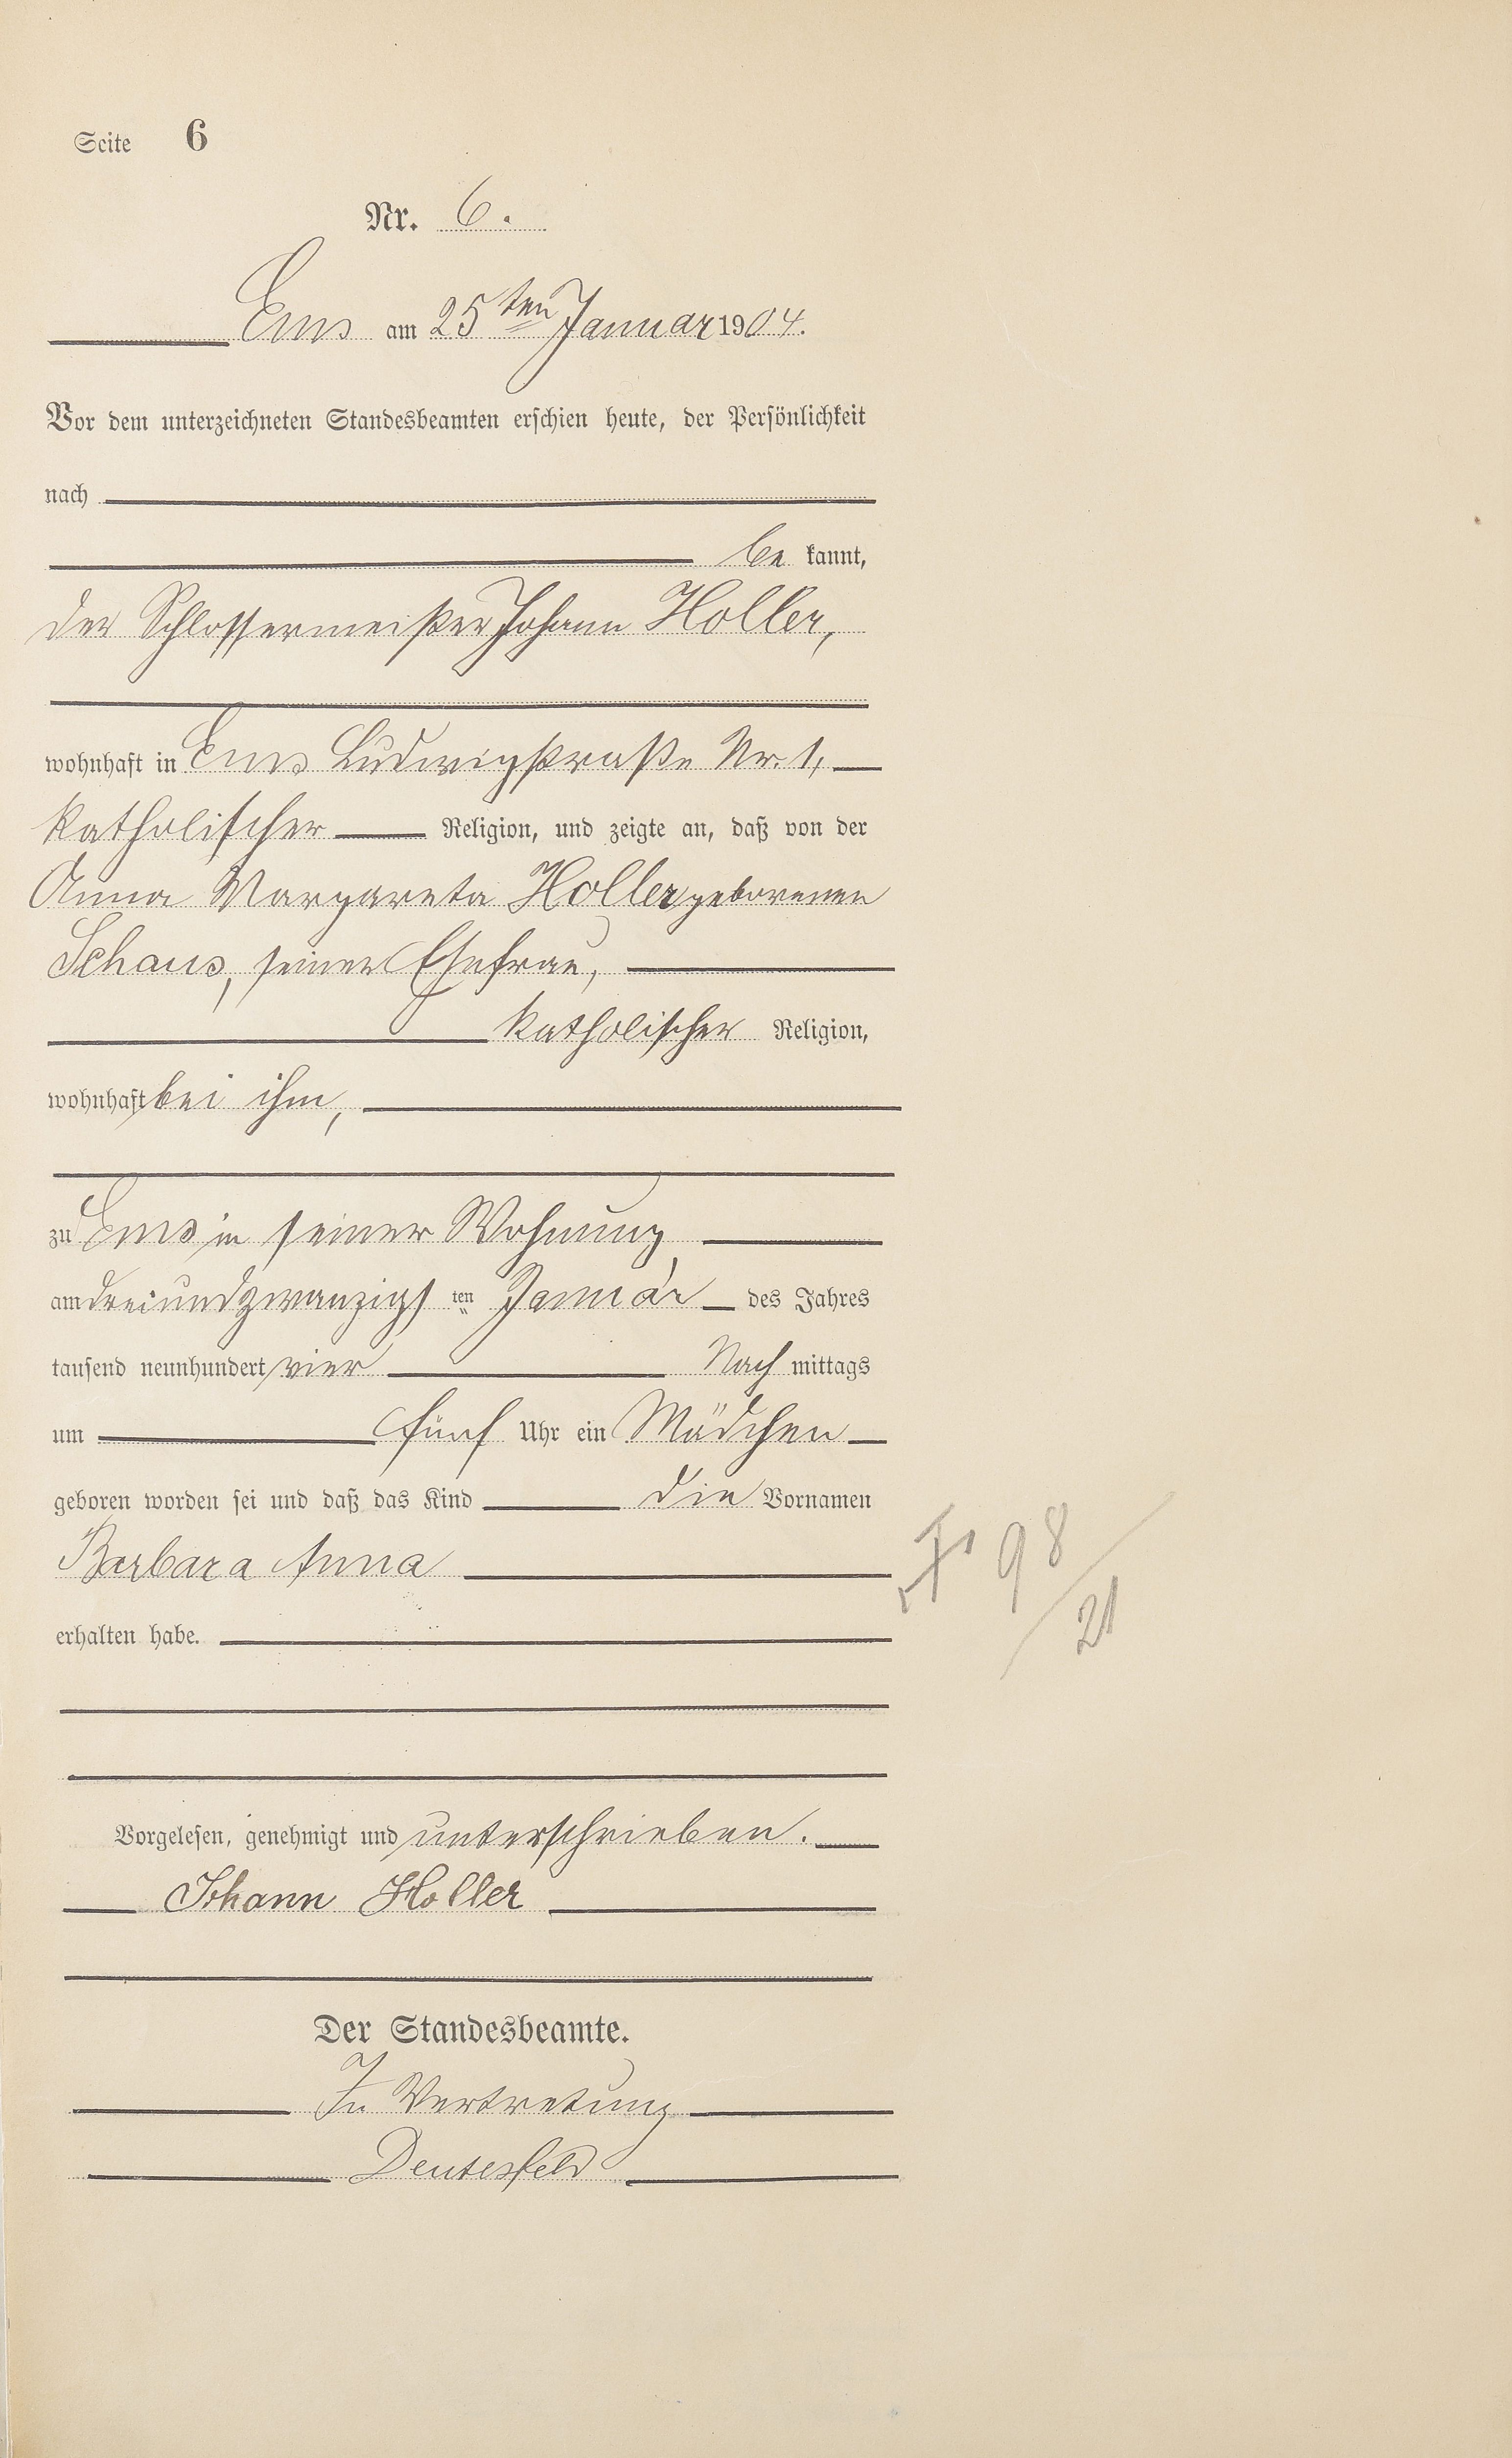 Seite 6
Nr. 6.
Ems am 25ten Januar 1904.
Vor dem unterzeichneten Standesbeamten erschien heute, der Persönlichkeit
nach
be kannt,
der Schlossermeister Johann Holler,
wohnhaft in Ems Ludwigstraße Nr. 1,
katholischer Religion, und zeigte an, daß von der
Anna Margareta Holler geborenen
Schaus, seiner Ehefrau,
katholischer Religion,
wohnhaft bei ihm,
zu Ems in seiner Wohnung
am dreiundzwanzigsten Januar des Jahres
tausend neunhundert vier Nach mittags
um fünf Uhr ein Mädchen
geboren worden sei und daß das Kind die Vornamen
Barbara Anna
erhalten habe.
Vorgelesen, genehmigt und unterschrieben.
Johann Holler
Der Standesbeamte.
In Vertretung
Deutesfeld
98
21